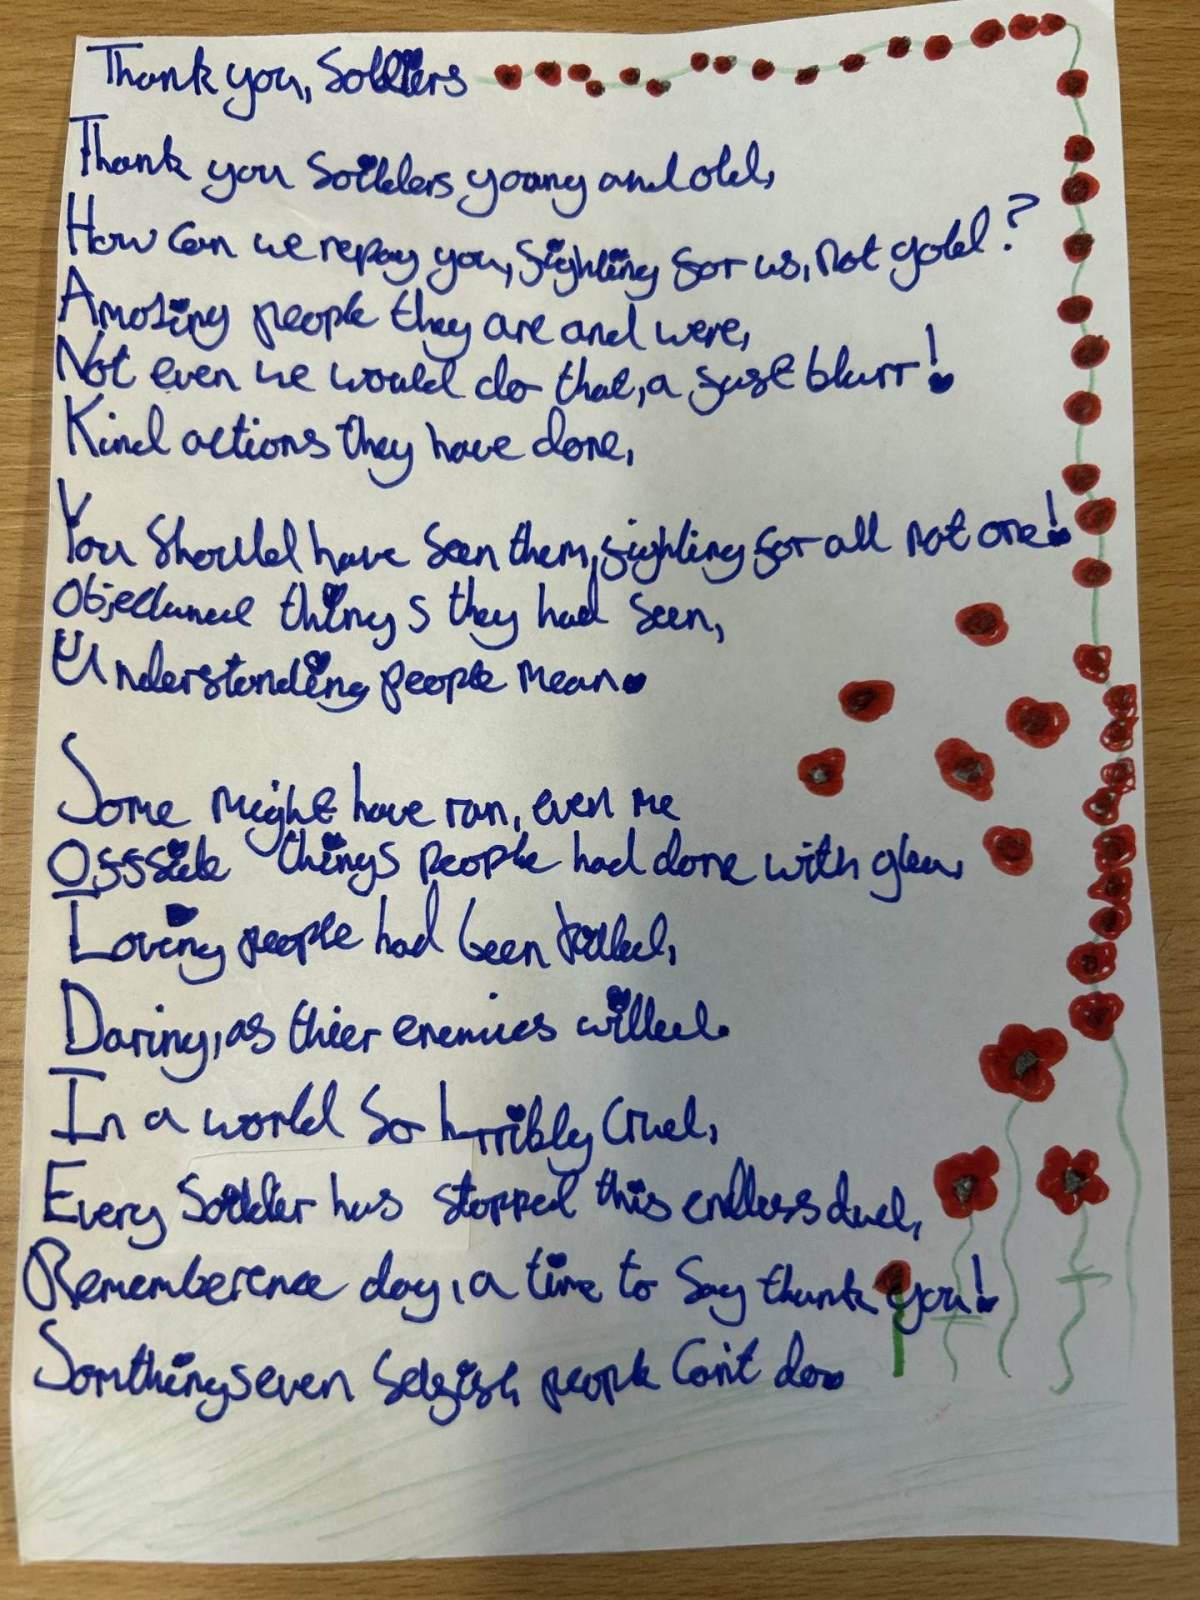 Thank you, Soldiers
Thank you Soilders young and old,
How can we repay you, fighting for us, not gold?
Amazing people they are and were,
Not even we would do that, a fast blurr!
Kind actions they have done,
You should have seen them, fighting for all not one!
things they had seen,
Understanding people mean.
Some might have ran, even me
things people had done with glea,
Loving people had been killed,
Daring, as thier enemies willed.
In a world so horribly cruel,
Every Soilder has stopped this endless duel,
Rememberence day, a time to say thank you!
Somthings even selfish people can't do.